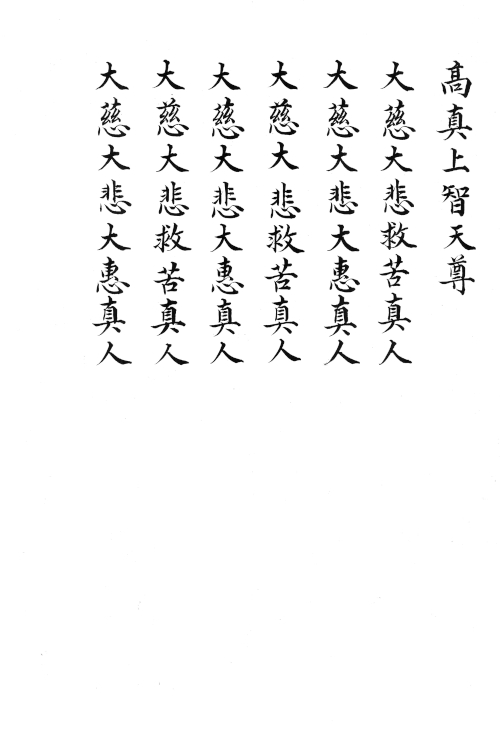 髙真上智天尊
大慈大悲救苦真人
大慈大悲大惠真人
大慈大悲救苦真人
大慈大悲大惠真人
大慈大悲救苦真人
大慈大悲大惠真人